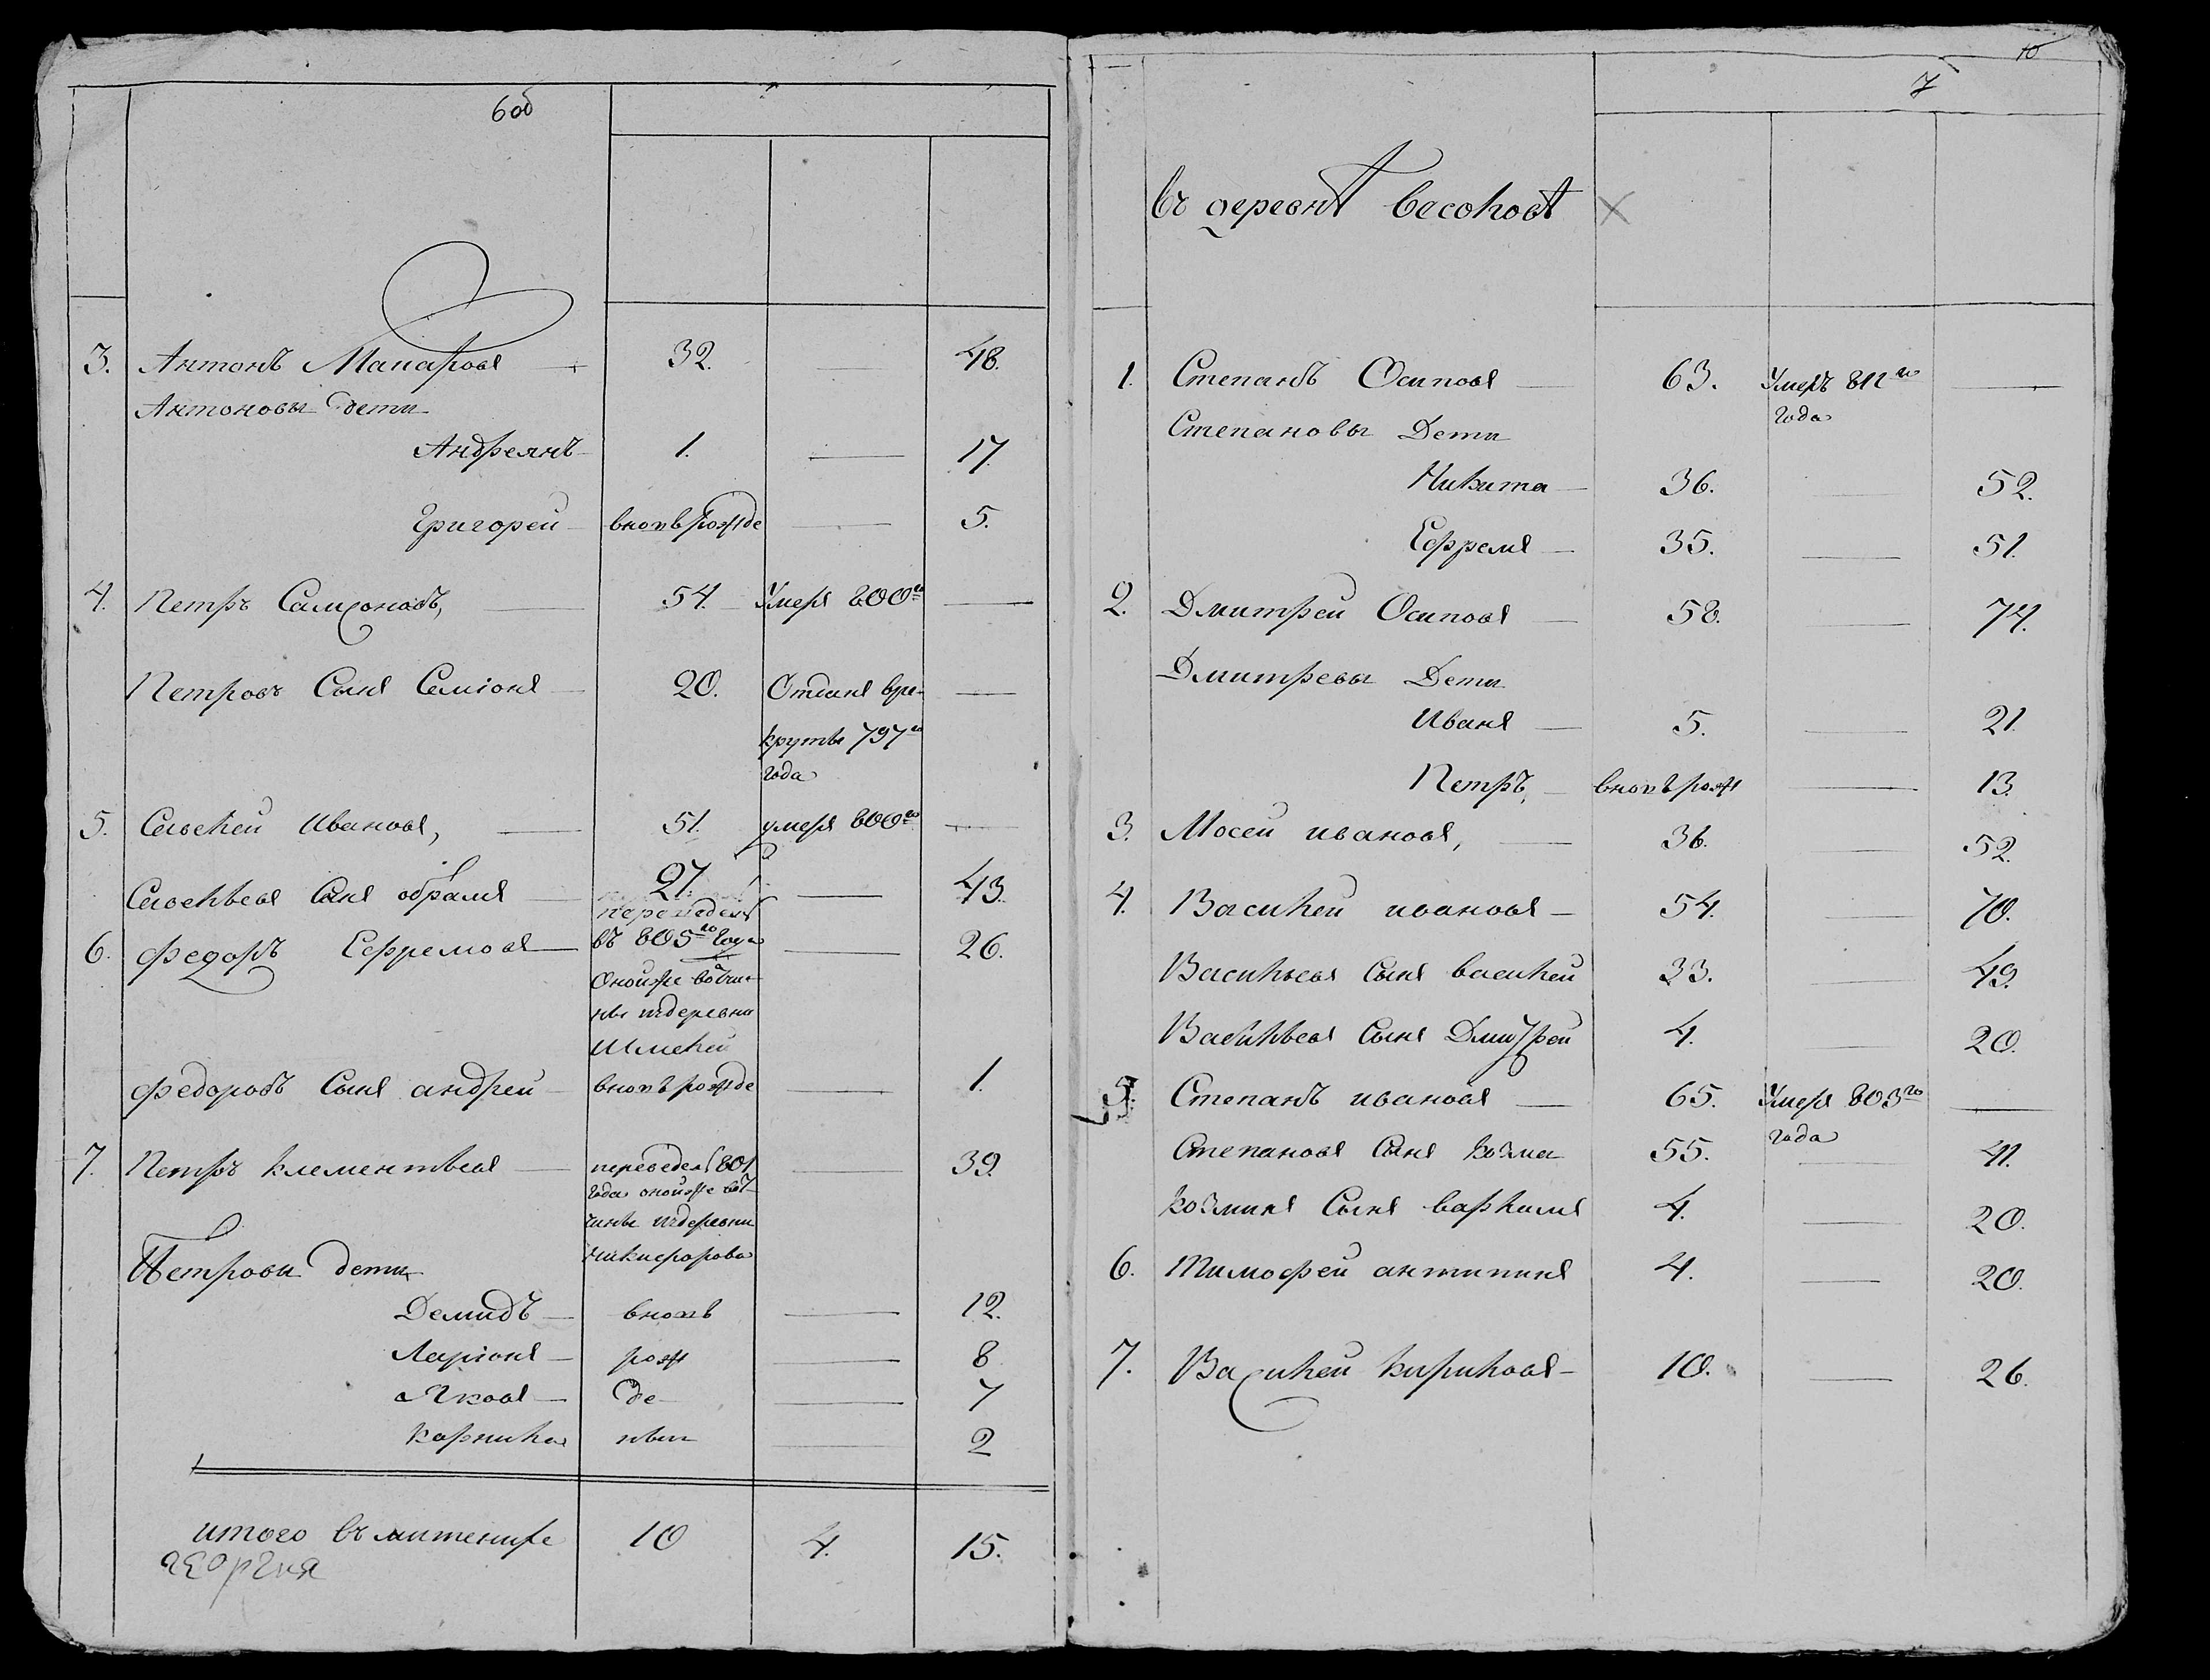 6 об
3. Антонъ Макаровъ 32. — 48.
Антоновы дети
Андреянъ 1. — 17.
Григорей вновь рожде — 5.
4. Петръ Самсоновъ, 54. Умеръ 800го —
Петровъ Сынъ Семіонъ 20. Отданъ вре-
круты 797го
года
5. Савелей Ивановъ, 51. умеръ 800го —
Савельевъ Сынъ обрамъ 27. — 43.
переведенъ
6. Федоръ Ефремовъ въ 805го году — 26.
Оной же вотчи-
ны издеревни
Федоровъ Сынъ андрей вновь рожде — 1.
7. Петръ клементьевъ переведенъ 801 — 39.
года оной же вот-
чины издеревни
Никифорова
Петровы дети
Демидъ вновь — 12.
Ларіонъ рож — 8
Яковъ де — 7
карнила ныи 2
итого въ 10 4. 15.
георгия
10
7
въ деревне высокове
1. Степанъ Осиповъ 63. Умеръ 811го —
года
Степановы Дети
Никита 36. — 52.
Ефремъ 35. — 51.
2. Дмитрей Осиповъ 58. — 74.
Дмитревы Дети
Иванъ 5. — 21.
Петръ, вновь рож — 13.
3. Мосей ивановъ, 36. — 52.
4. Василей ивановъ 54. — 70.
Васильевъ Сынъ василей 33. — 49.
Васильевъ Сынъ Дмитрей 4. — 20.
5. Степанъ ивановъ 65. Умеръ 803го —
года
Степановъ Сынъ козма 55. — 41.
козминъ Сынъ варламъ 4. — 20.
6. Тимофей антипинъ 4. — 20.
7. Василей кириловъ 10. — 26.